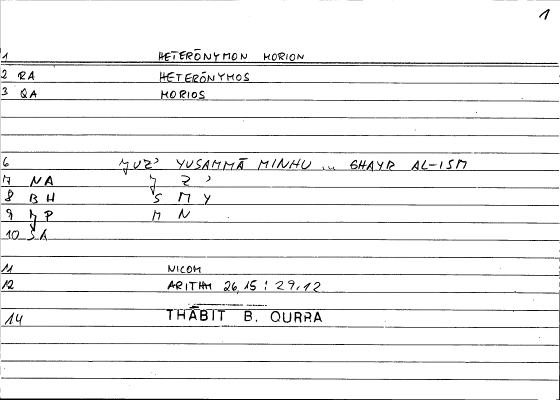 1
1 HETERŌNYMON MORION
2 RA HETERŌNYMOS
3 QA MORIOS
6 ǦUZ' YUSAMMĀ MINHU ... GHAYR AL-ISM
7 NA Ǧ Z '
8 BH S M Y
9 ǦP M N
10 SA
11 NICOM
12 ARITHM 26,15 : 29,12
14 THĀBIT B. QURRA